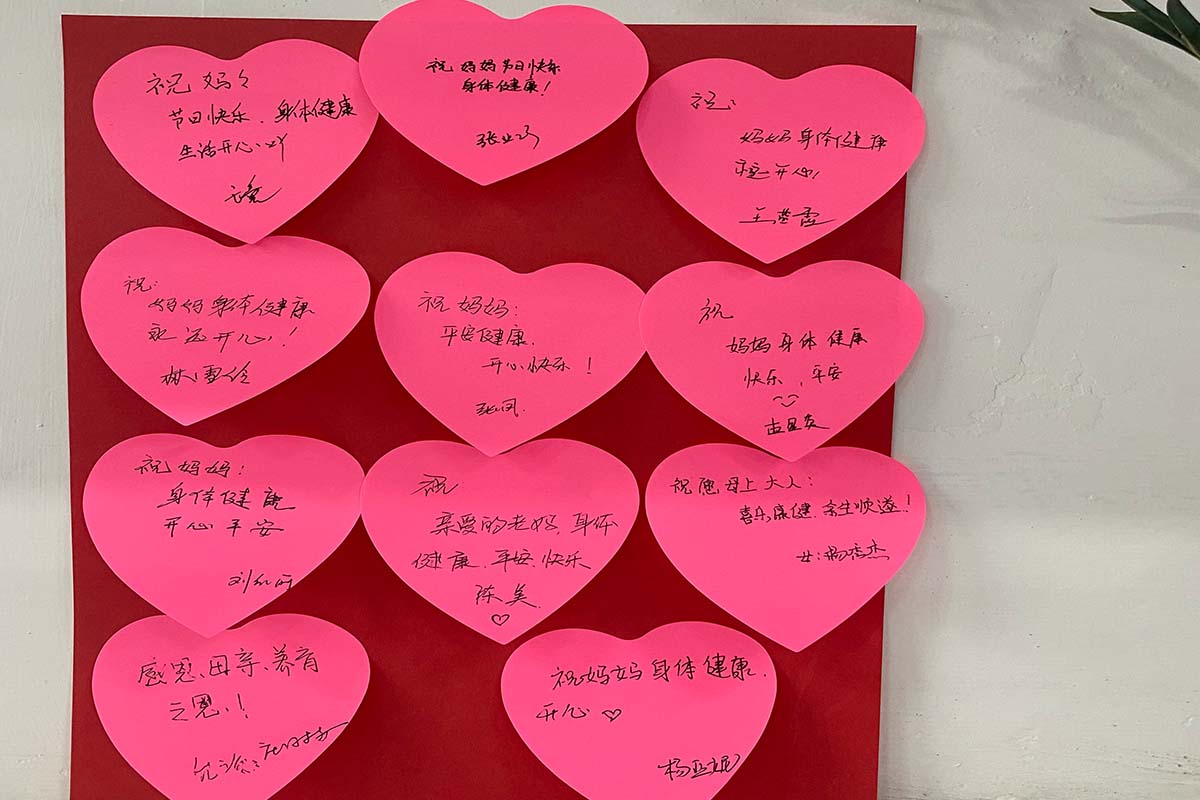 祝妈々
节日快乐、身体健康
生活开心
祝妈妈节日快乐
身体健康!
祝:
妈妈身体健康
永远开心!
祝:
妈妈身体健康
永远开心!
林雪伶
祝妈妈:
平安健康.
开心快乐!
张凤.
祝
妈妈身体健康
快乐、平安
祝妈妈:
身体健康
开心平安
祝:
亲爱的老妈,身体
健康、平安、快乐
陈美
♡
祝恩母上大人:
喜乐康健、余生顺遂!
女:杨秀杰
感恩、母亲、养育
之恩、!
祝妈妈身体健康.
开心♡